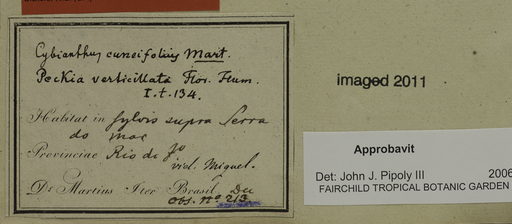 Cybianthus cuneifolius Mart.
Peckia verticillata Flor. Flum.
I. t. 134.
Habitat in sylvis supra Serra
do mac
Provinciae Rio de Jo
vid. Miquel.
Dr. Martius Iter Brasil. Du
Obs. no 213
imaged 2011
Approbavit
Det: John J. Pipoly III 2006
FAIRCHILD TROPICAL BOTANIC GARDEN